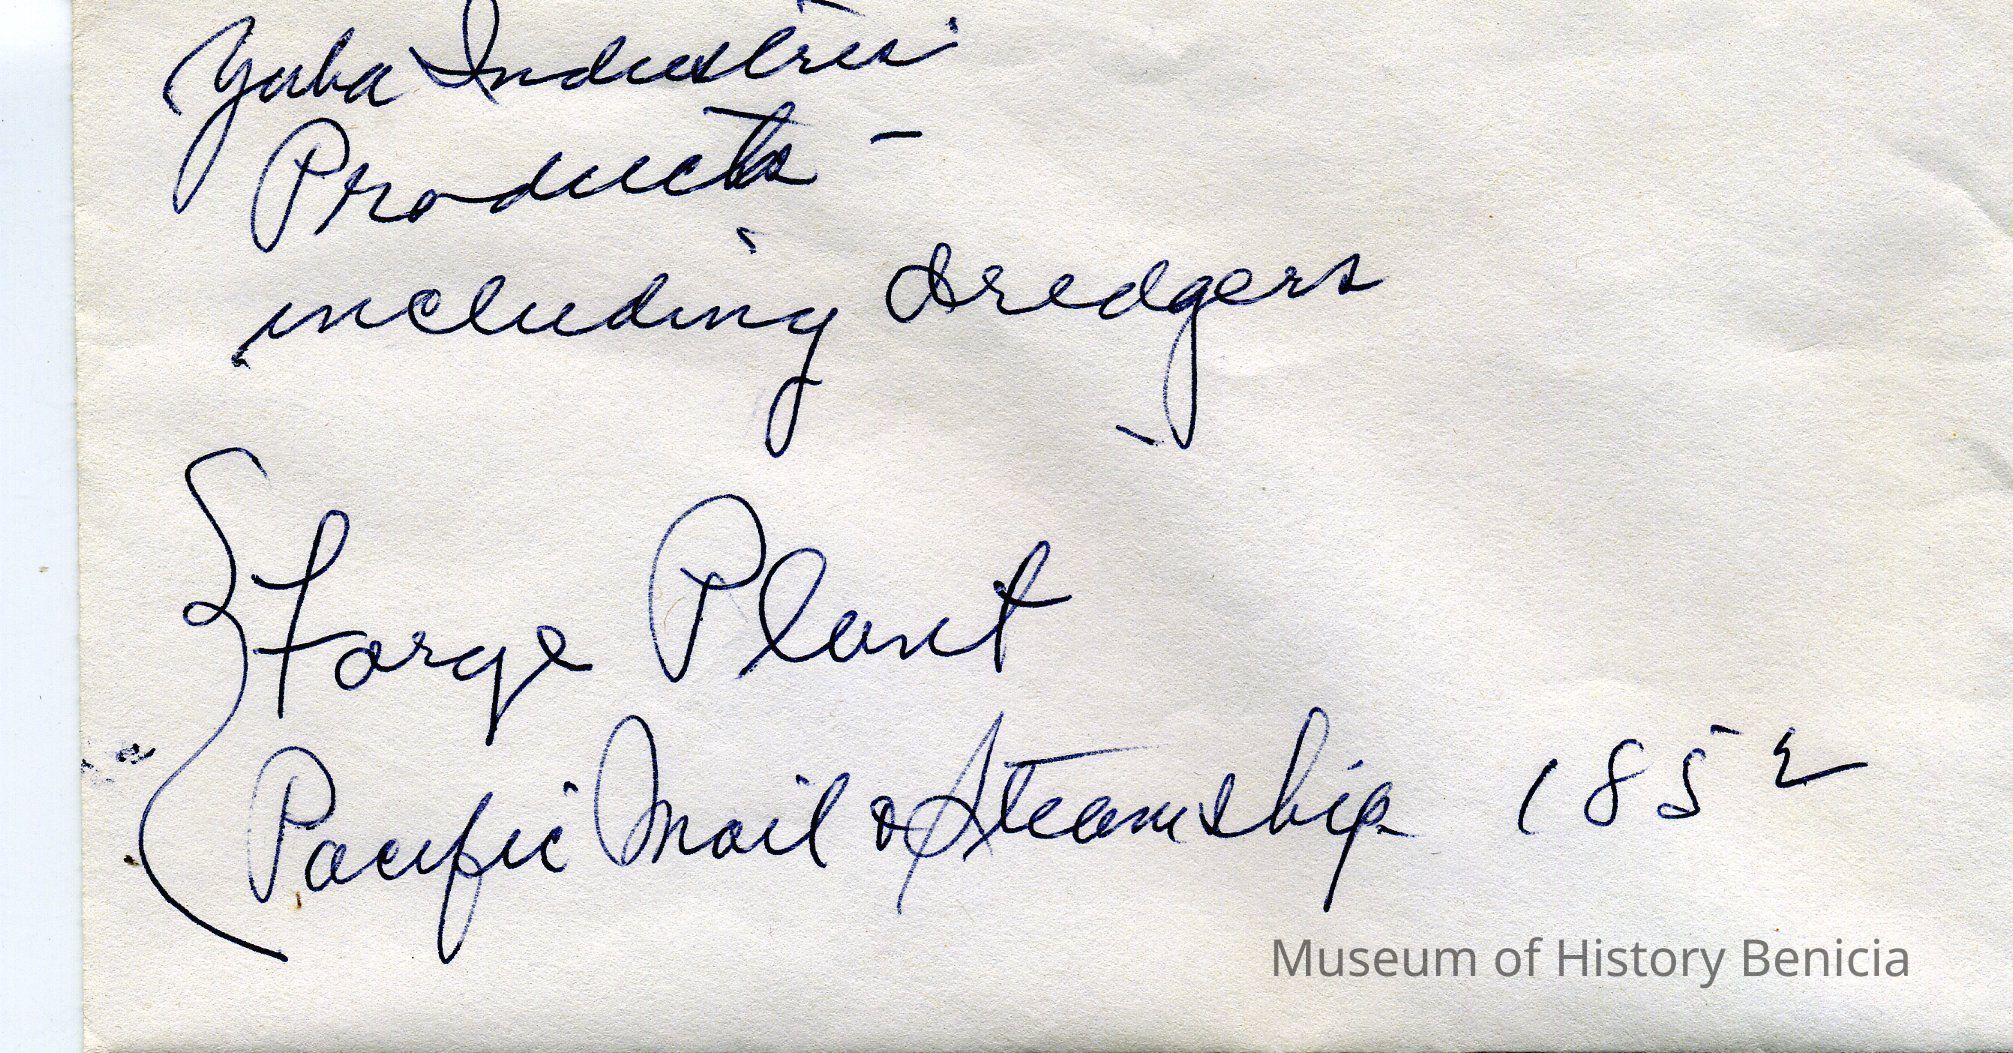 Yuba Industries
Products –
including dredgers
Forge Plant
Pacific Mail & Steamship 1852
Museum of History Benicia